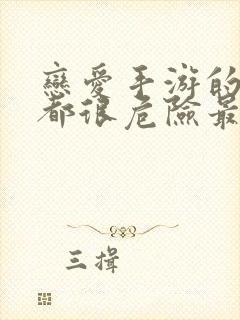 戀愛手游的
都很危險最
三揖